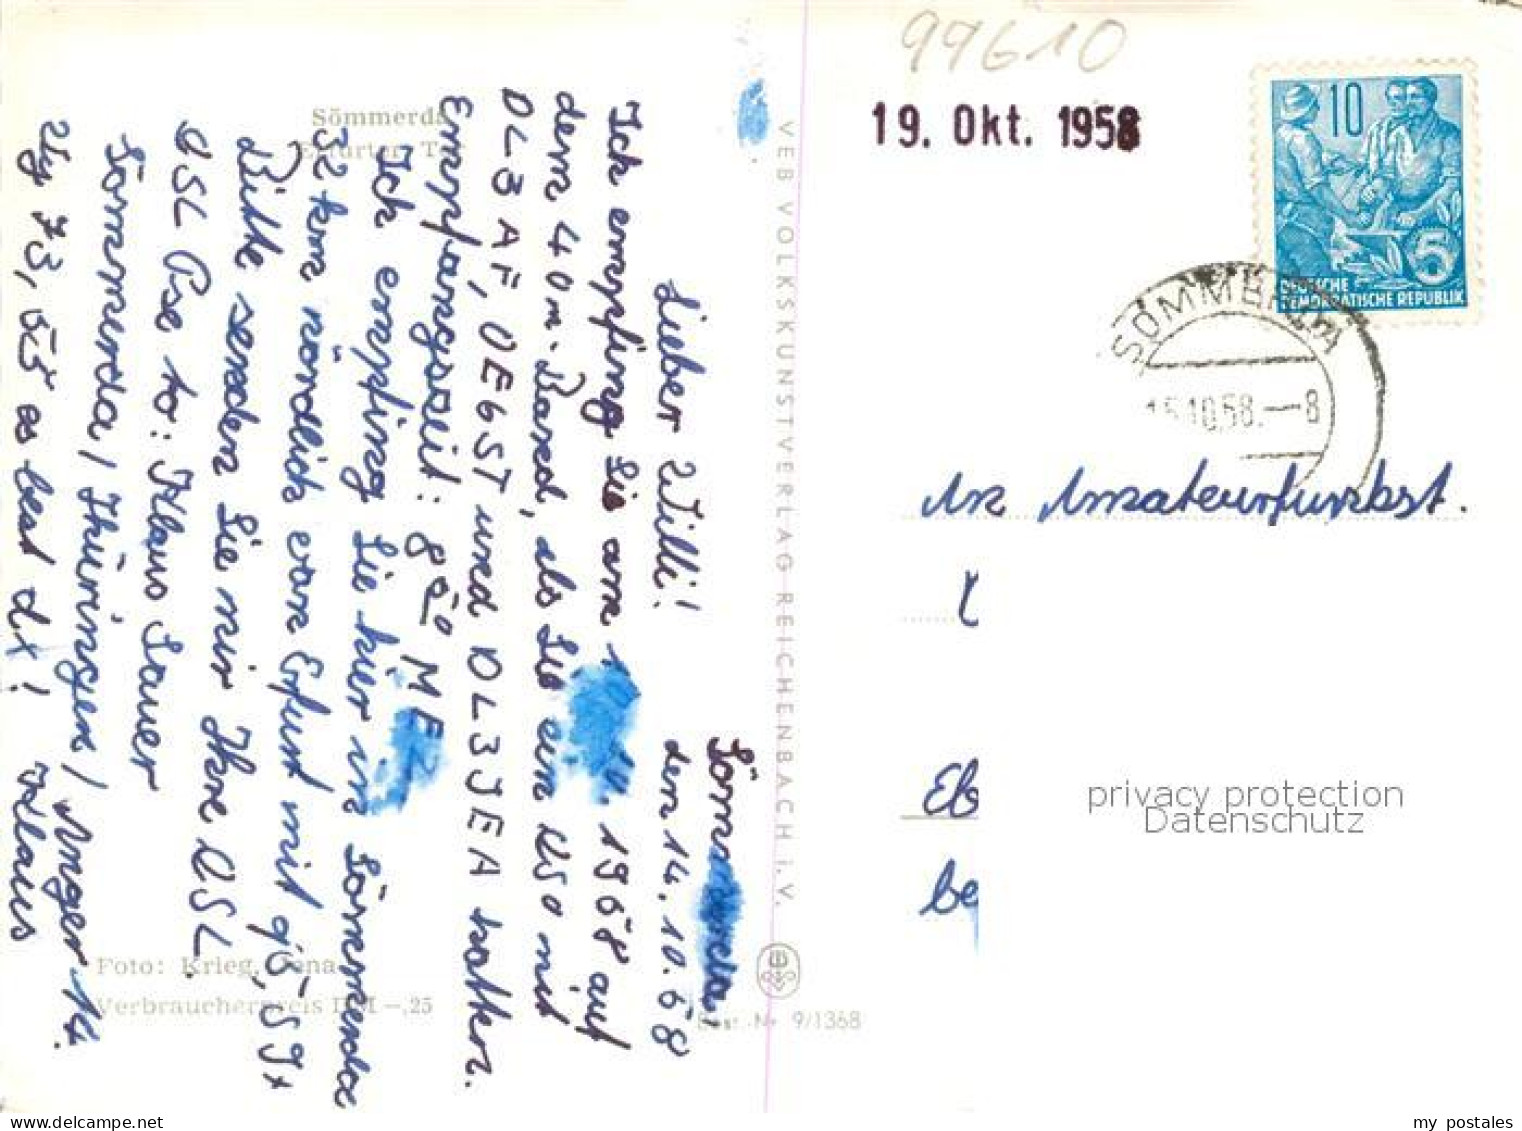 99610
19. Okt. 1958
10
5
DEUTSCHE
DEMOKRATISCHE REPUBLIK
SÖMMERDA
15.10.58.-8
An Amateurfunkst.
privacy protection
Datenschutz
Sömmerda
Erfurter Tor
VEB VOLKSKUNSTVERLAG REICHENBACH i. V.
Foto: Krieg, Jena
Verbraucherpreis DM -,25
Best.-Nr. 9/1368
Sömmerda,
den 14. 10. 58
Lieber Willi!
Ich empfing Sie am 10. 1958 auf
dem 40m-Band, als Sie ein QSO mit
DL3AF, OE6ST und DL3JEA hatten.
Empfangszeit: 8⁵⁰ MEZ
Ich empfing Sie hier in Sömmerda
32 km nördlich von Erfurt mit 5, S9+
Bitte senden Sie mir Ihre QSL.
QSL Pse to: Klaus Sauer
Sömmerda / Thüringen / Anger 14.
Vy 73, 55 es best dx! Klaus
my postales